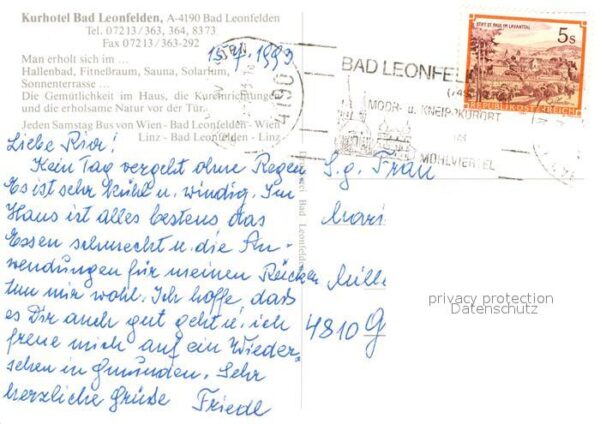 Kurhotel Bad Leonfelden, A-4190 Bad Leonfelden
Tel. 07213 / 363, 364, 8373
Fax 07213 / 363-292
15.7.1993
Man erholt sich im ...
Hallenbad, Fitneßraum, Sauna, Solarium,
Sonnenterrasse ...
Die Gemütlichkeit im Haus, die Kureinrichtungen
und die erholsame Natur vor der Tür.
Jeden Samstag Bus von Wien - Bad Leonfelden - Wien
Linz - Bad Leonfelden - Linz
Liebe Risa!
Kein Tag vergeht ohne Regen
Es ist sehr kühl u. windig. Im
Haus ist alles bestens das
Essen schmeckt u. die An-
wendungen für meinen Rücken
tun mir wohl. Ich hoffe, daß
es Dir auch gut geht u. ich
freue mich auf ein Wieder-
sehen in Gmunden. Sehr
herzliche Grüße Friedl
4190
BAD LEONFELD
MOOR- u. KNEIPPKURORT
MÜHLVIERTEL
STIFT ST. PAUL IM LAVANTTAL
5s
REPUBLIK ÖSTERREICH
S.g. Frau
Mari
Mille
4810 G
privacy protection
Datenschutz